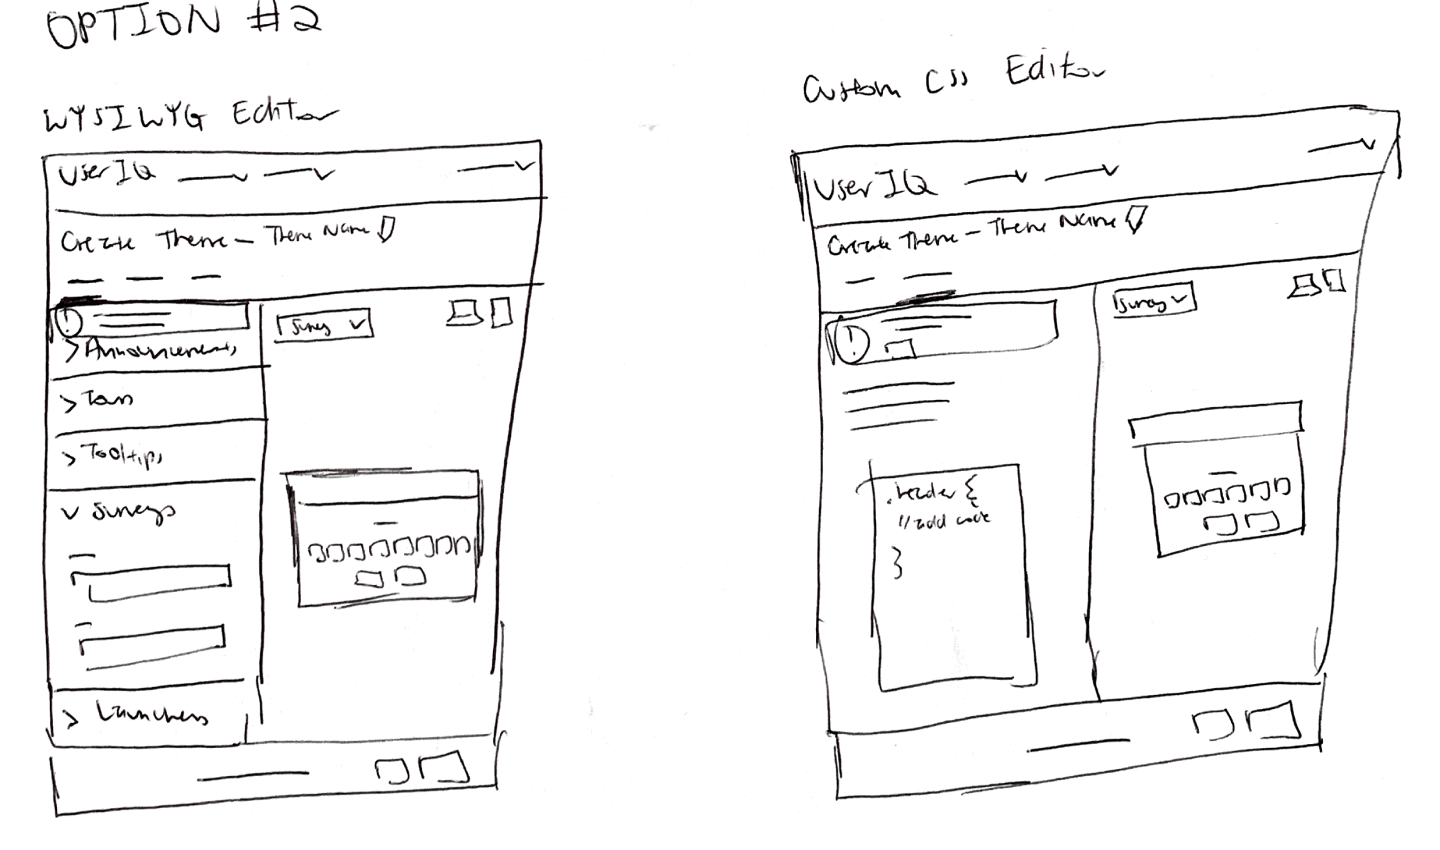 OPTION #2
WYSIWYG Editor
UserIQ
Create Theme - Theme Name
!
> Announcements
> Tours
> Tooltips
v Surveys
> Launchers
Survey v
Custom CSS Editor
UserIQ
Create Theme - Theme Name
!
.header {
// add code
}
Survey v